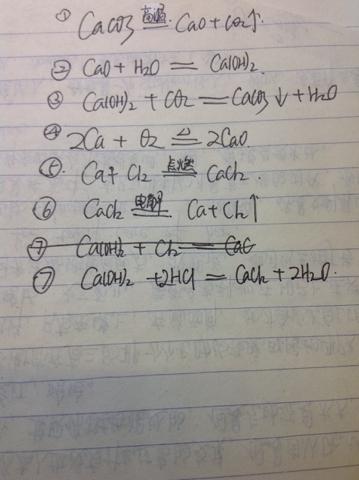 ① CaCO3 =高温= CaO + CO2↑
② CaO + H2O = Ca(OH)2.
③ Ca(OH)2 + CO2 = CaCO3↓ + H2O
④ 2Ca + O2 =△= 2CaO.
⑤. Ca + Cl2 =点燃= CaCl2.
⑥ CaCl2 =电解= Ca + Cl2↑
⑦ Ca(OH)2 + Cl2 = CaC
⑦ Ca(OH)2 + 2HCl = CaCl2 + 2H2O.